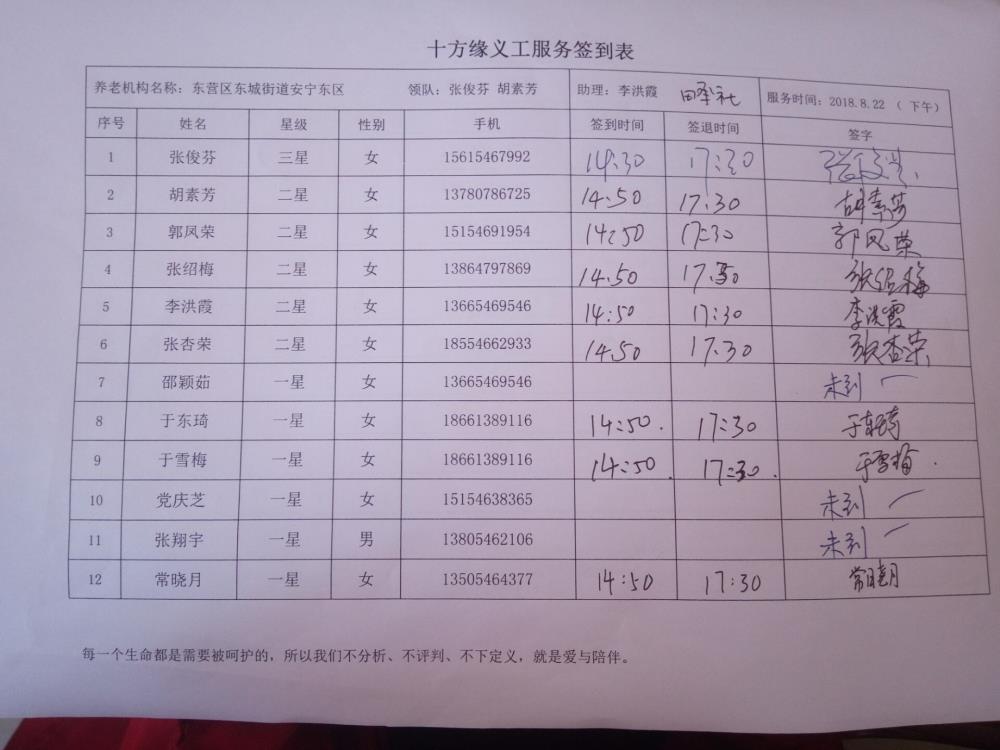 十方缘义工服务签到表
养老机构名称：东营区东城街道安宁东区 领队：张俊芬 胡素芳 助理：李洪霞 服务时间：2018.8.22 （ 下午）
序号 姓名 星级 性别 手机 签到时间 签退时间 签字
1 张俊芬 三星 女 15615467992 14:30 17:30
2 胡素芳 二星 女 13780786725 14:50 17:30 胡素芳
3 郭凤荣 二星 女 15154691954 14:50 17:30 郭凤荣
4 张绍梅 二星 女 13864797869 14.50 17.30 张绍梅
5 李洪霞 二星 女 13665469546 14:50 17:30 李洪霞
6 张杏荣 二星 女 18554662933 14.50 17.30 张杏荣
7 邵颖茹 一星 女 13665469546 未到
8 于东琦 一星 女 18661389116 14:50. 17:30 于东琦
9 于雪梅 一星 女 18661389116 14:50. 17:30. 于雪梅.
10 党庆芝 一星 女 15154638365 未到
11 张翔宇 一星 男 13805462106 未到
12 常晓月 一星 女 13505464377 14:50 17:30 常晓月
每一个生命都是需要被呵护的，所以我们不分析、不评判、不下定义，就是爱与陪伴。